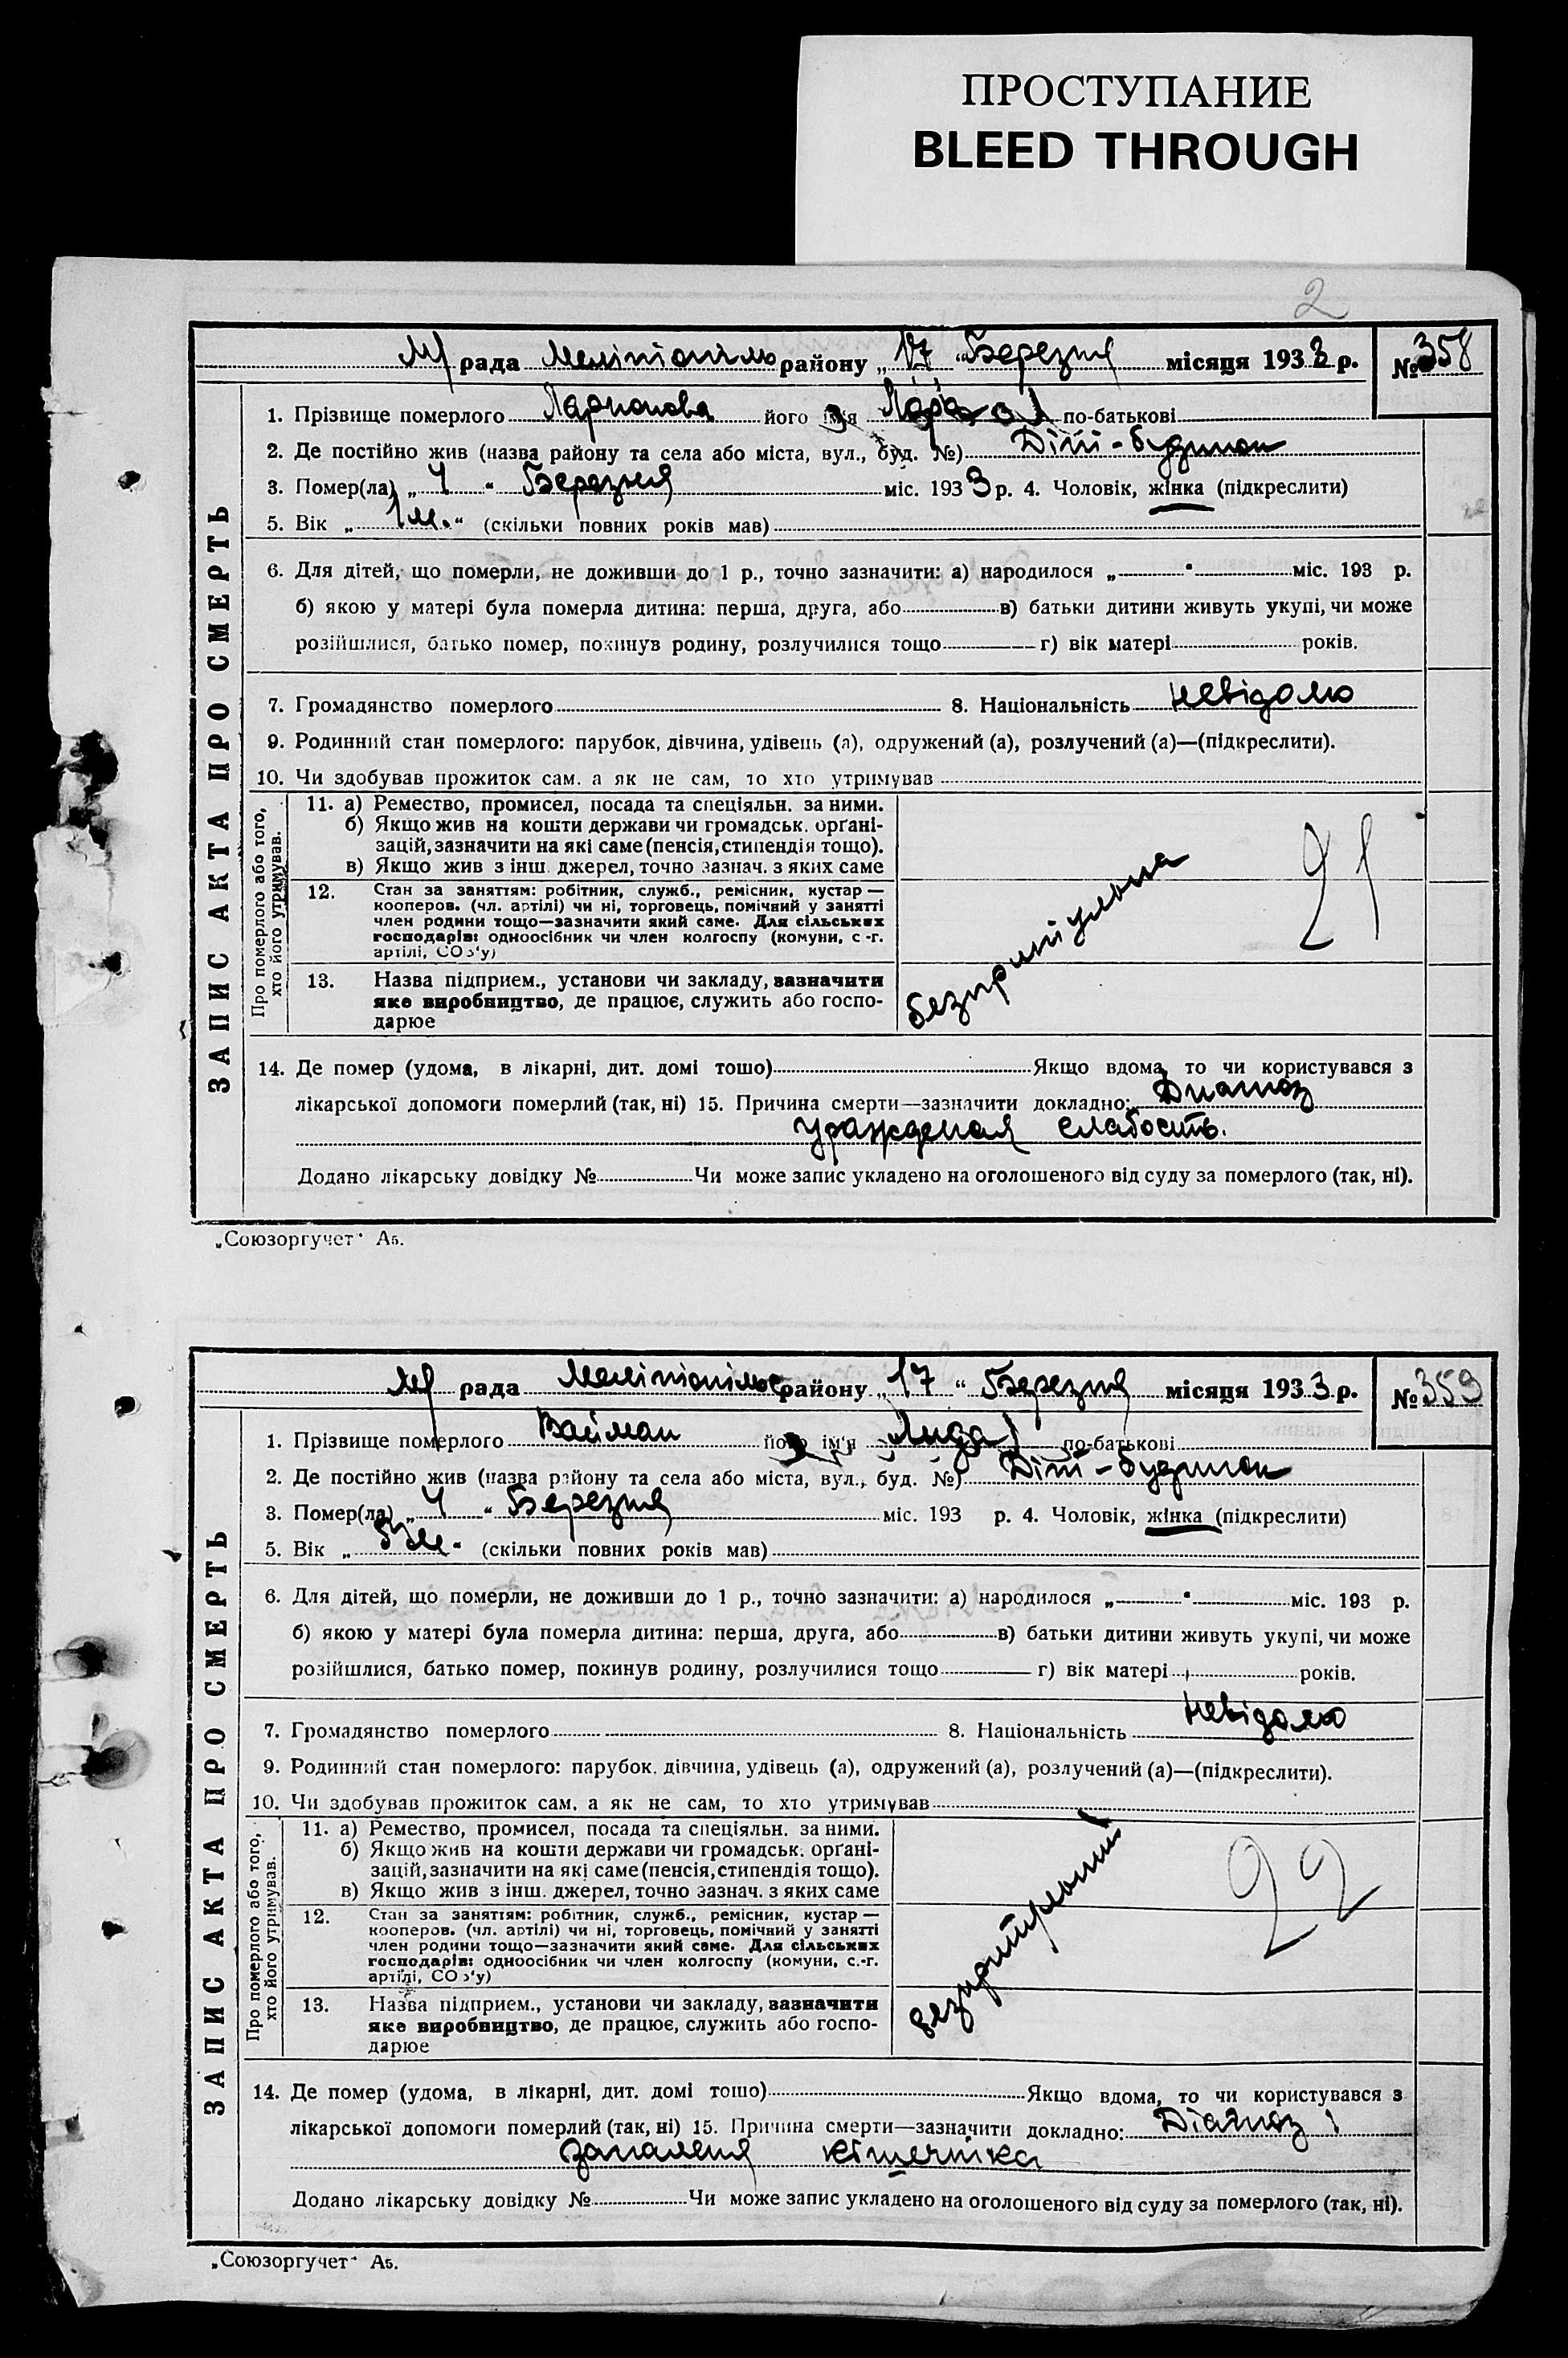 ПРОСТУПАНИЕ
BLEED THROUGH
2
рада Мелітопільс району „17“ Березня місяця 1933 р. № 358
1. Прізвище померлого Ларионова його ім'я Лора по-батькові
2. Де постійно жив (назва району та села або міста, вул., буд. №) Діт-будинок
3. Помер(ла) „4“ Березня міс. 1933 р. 4. Чоловік, жінка (підкреслити)
5. Вік „1 м.“ (скільки повних років мав)
6. Для дітей, що померли, не доживши до 1 р., точно зазначити: а) народилося „ “ міс. 193 р.
б) якою у матері була померла дитина: перша, друга, або в) батьки дитини живуть укупі, чи може
розійшлися, батько помер, покинув родину, розлучилися тощо г) вік матері років.
7. Громадянство померлого 8. Національність невідомо
9. Родинний стан померлого: парубок, дівчина, удівець (а), одружений (а), розлучений (а)—(підкреслити).
10. Чи здобував прожиток сам, а як не сам, то хто утримував
ЗАПИС АКТА ПРО СМЕРТЬ
Про померлого або того, хто його утримував.
11. а) Ремество, промисел, посада та спеціяльн. за ними.
б) Якщо жив на кошти держави чи громадськ. орґані-
зацій, зазначити на які саме (пенсія, стипендія тощо).
в) Якщо жив з інш. джерел, точно зазнач. з яких саме
12. Стан за заняттям: робітник, служб., ремісник, кустар —
кооперов. (чл. артілі) чи ні, торговець, помічний у занятті
член родини тощо—зазначити який саме. Для сільських
господарів: одноосібник чи член колгоспу (комуни, с.-г.
артілі, СОЗ'у)
13. Назва підприєм., установи чи закладу, зазначити
яке виробництво, де працює, служить або госпо-
дарює
безпритульна
21
14. Де помер (удома, в лікарні, дит. домі тошо) Якщо вдома, то чи користувався з
лікарської допомоги померлий (так, ні) 15. Причина смерти—зазначити докладно: Диагноз
урожденая слабость.
Додано лікарську довідку № Чи може запис укладено на оголошеного від суду за померлого (так, ні).
„Союзоргучет“ А5.
рада Мелітопільс району „17“ Березня місяця 1933 р. № 359
1. Прізвище померлого Вайман його ім'я Лида по-батькові
2. Де постійно жив (назва району та села або міста, вул., буд. №) Діт-будинок
3. Помер(ла) „4“ Березня міс. 193 р. 4. Чоловік, жінка (підкреслити)
5. Вік „ м“ (скільки повних років мав)
6. Для дітей, що померли, не доживши до 1 р., точно зазначити: а) народилося „ “ міс. 193 р.
б) якою у матері була померла дитина: перша, друга, або в) батьки дитини живуть укупі, чи може
розійшлися, батько помер, покинув родину, розлучилися тощо г) вік матері років.
7. Громадянство померлого 8. Національність невідомо
9. Родинний стан померлого: парубок, дівчина, удівець (а), одружений (а), розлучений (а)—(підкреслити).
10. Чи здобував прожиток сам, а як не сам, то хто утримував
ЗАПИС АКТА ПРО СМЕРТЬ
Про померлого або того, хто його утримував.
11. а) Ремество, промисел, посада та спеціяльн. за ними.
б) Якщо жив на кошти держави чи громадськ. орґані-
зацій, зазначити на які саме (пенсія, стипендія тощо).
в) Якщо жив з інш. джерел, точно зазнач. з яких саме
12. Стан за заняттям: робітник, служб., ремісник, кустар —
кооперов. (чл. артілі) чи ні, торговець, помічний у занятті
член родини тощо—зазначити який саме. Для сільських
господарів: одноосібник чи член колгоспу (комуни, с.-г.
артілі, СОЗ'у)
13. Назва підприєм., установи чи закладу, зазначити
яке виробництво, де працює, служить або госпо-
дарює
безпритульний
22
14. Де помер (удома, в лікарні, дит. домі тошо) Якщо вдома, то чи користувався з
лікарської допомоги померлий (так, ні) 15. Причина смерти—зазначити докладно: Діагноз
запалення кішечніка
Додано лікарську довідку № Чи може запис укладено на оголошеного від суду за померлого (так, ні).
„Союзоргучет“ А5.